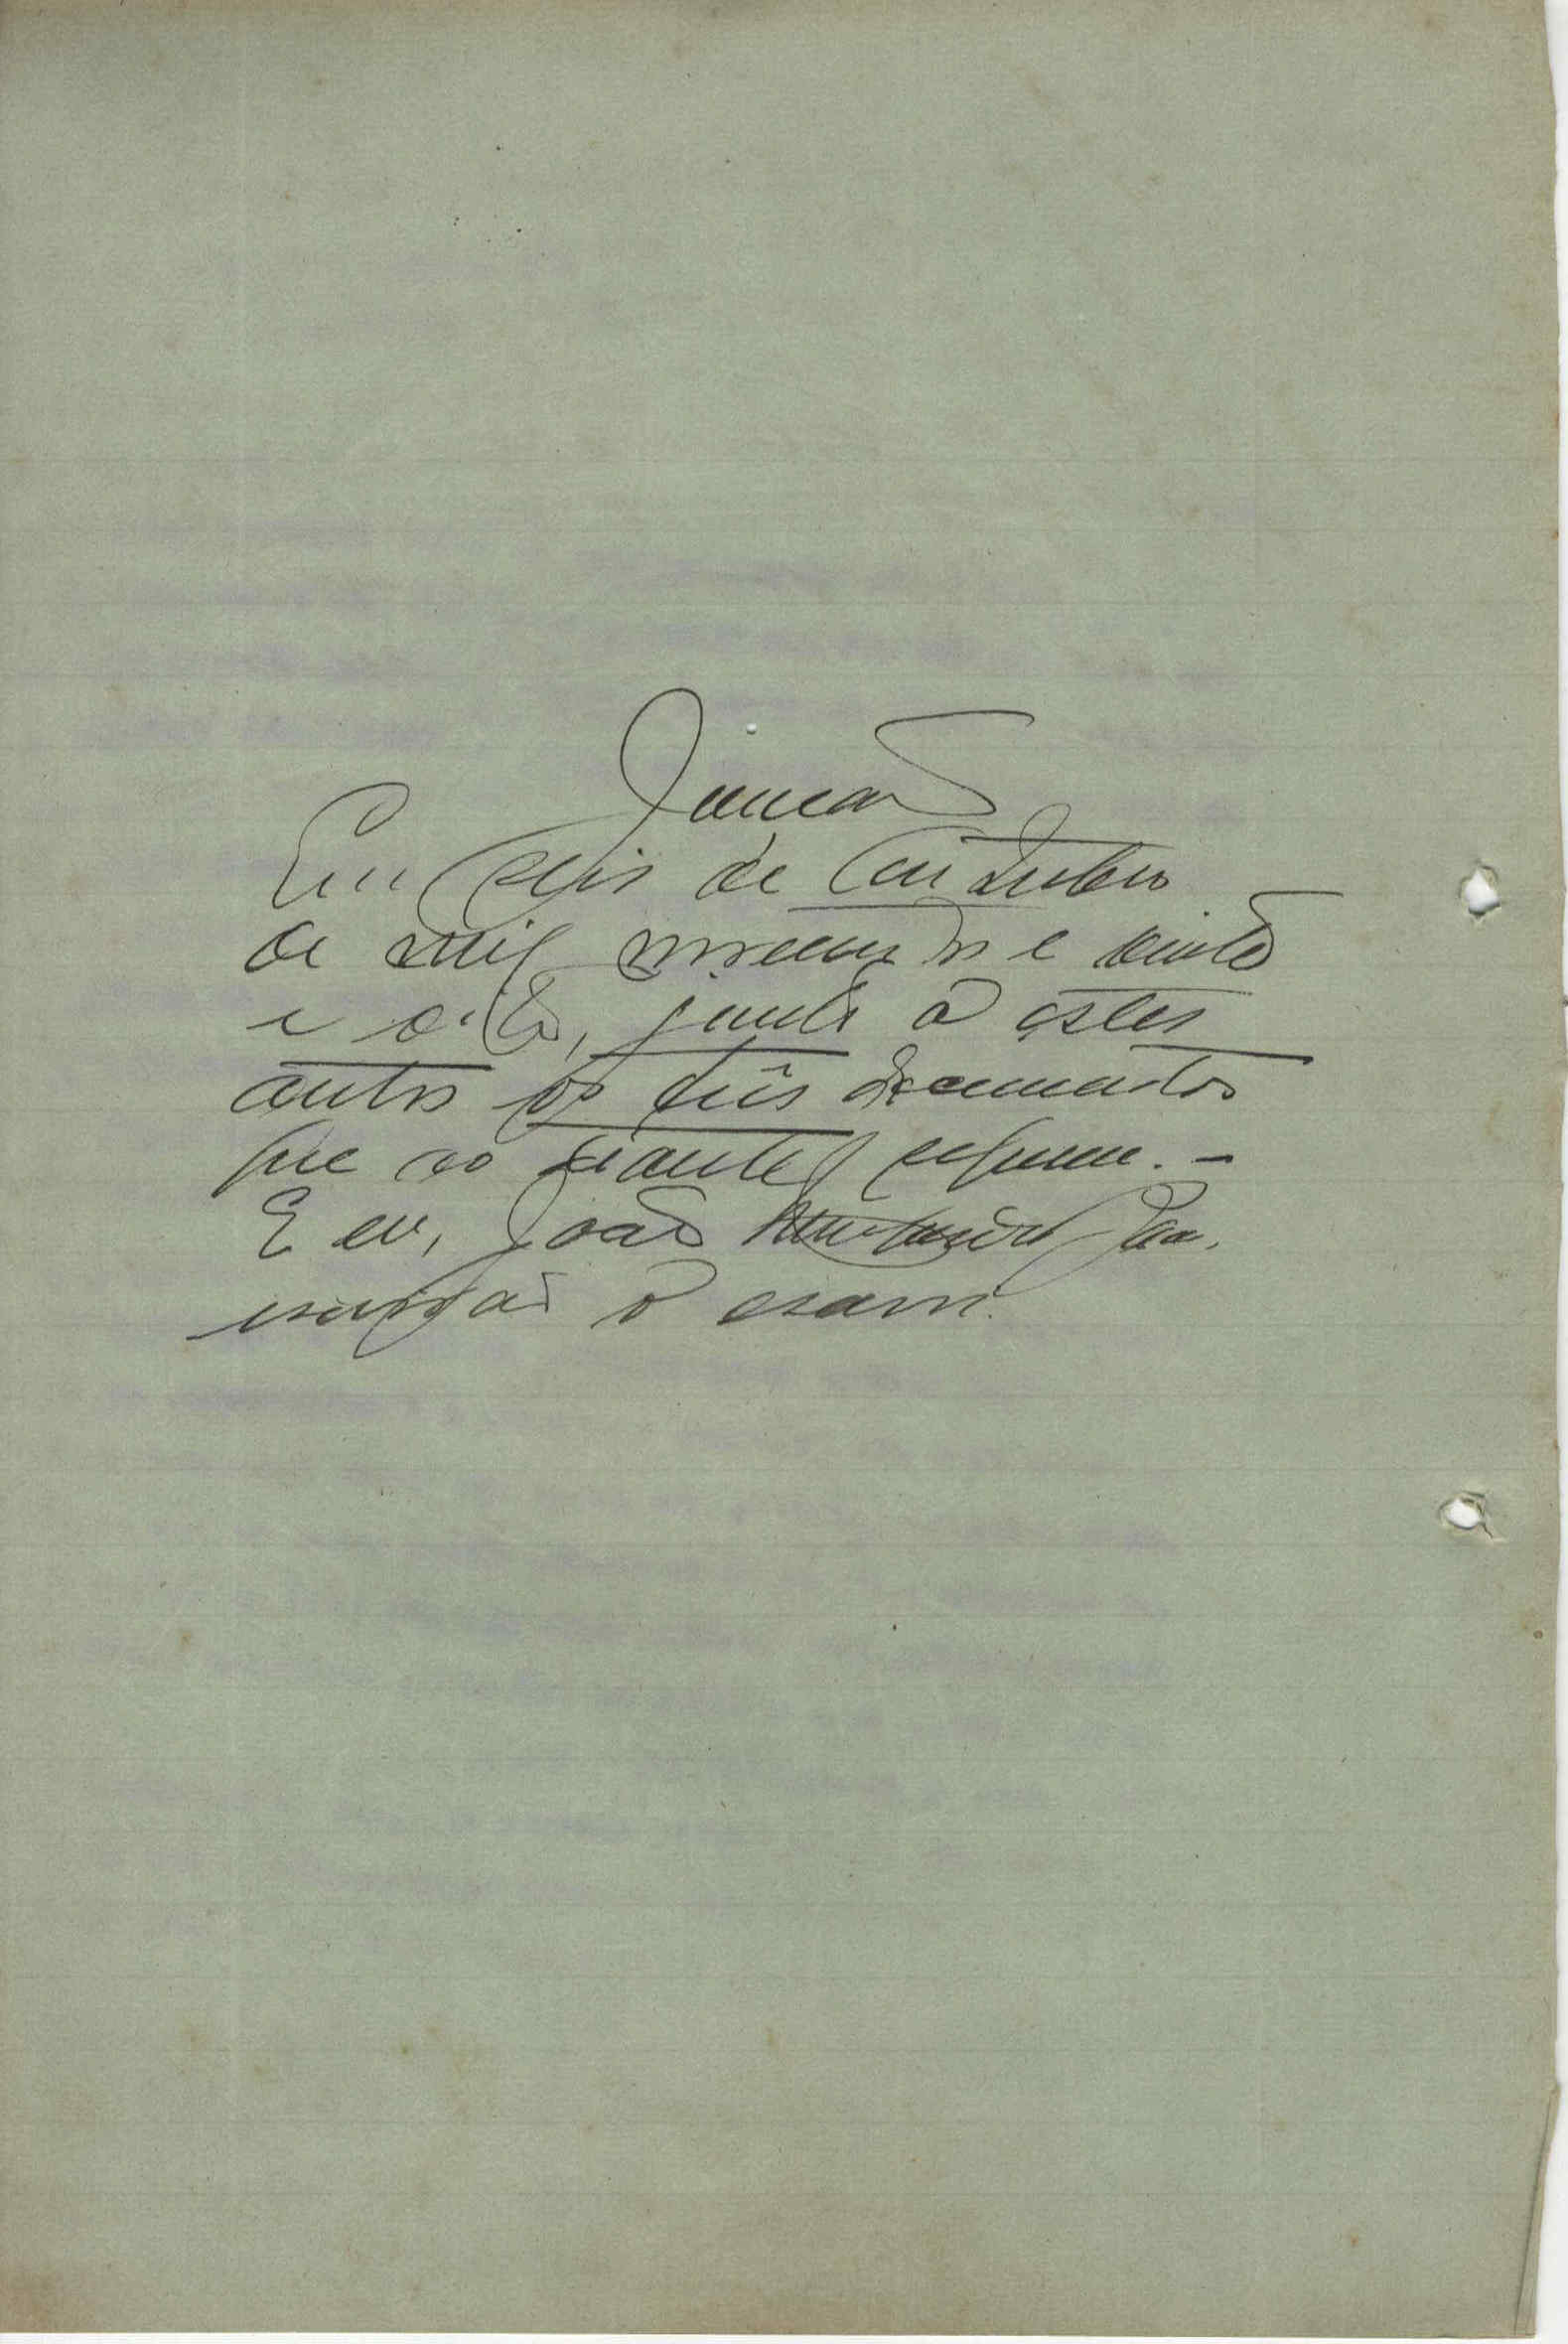 Juncção
Em seis de Outubro
de mil novecentos e vinte
e oito, junto a estes
autos os dois documentos
que ao diante seguem. -
E eu, João
escrivão o escrevi.